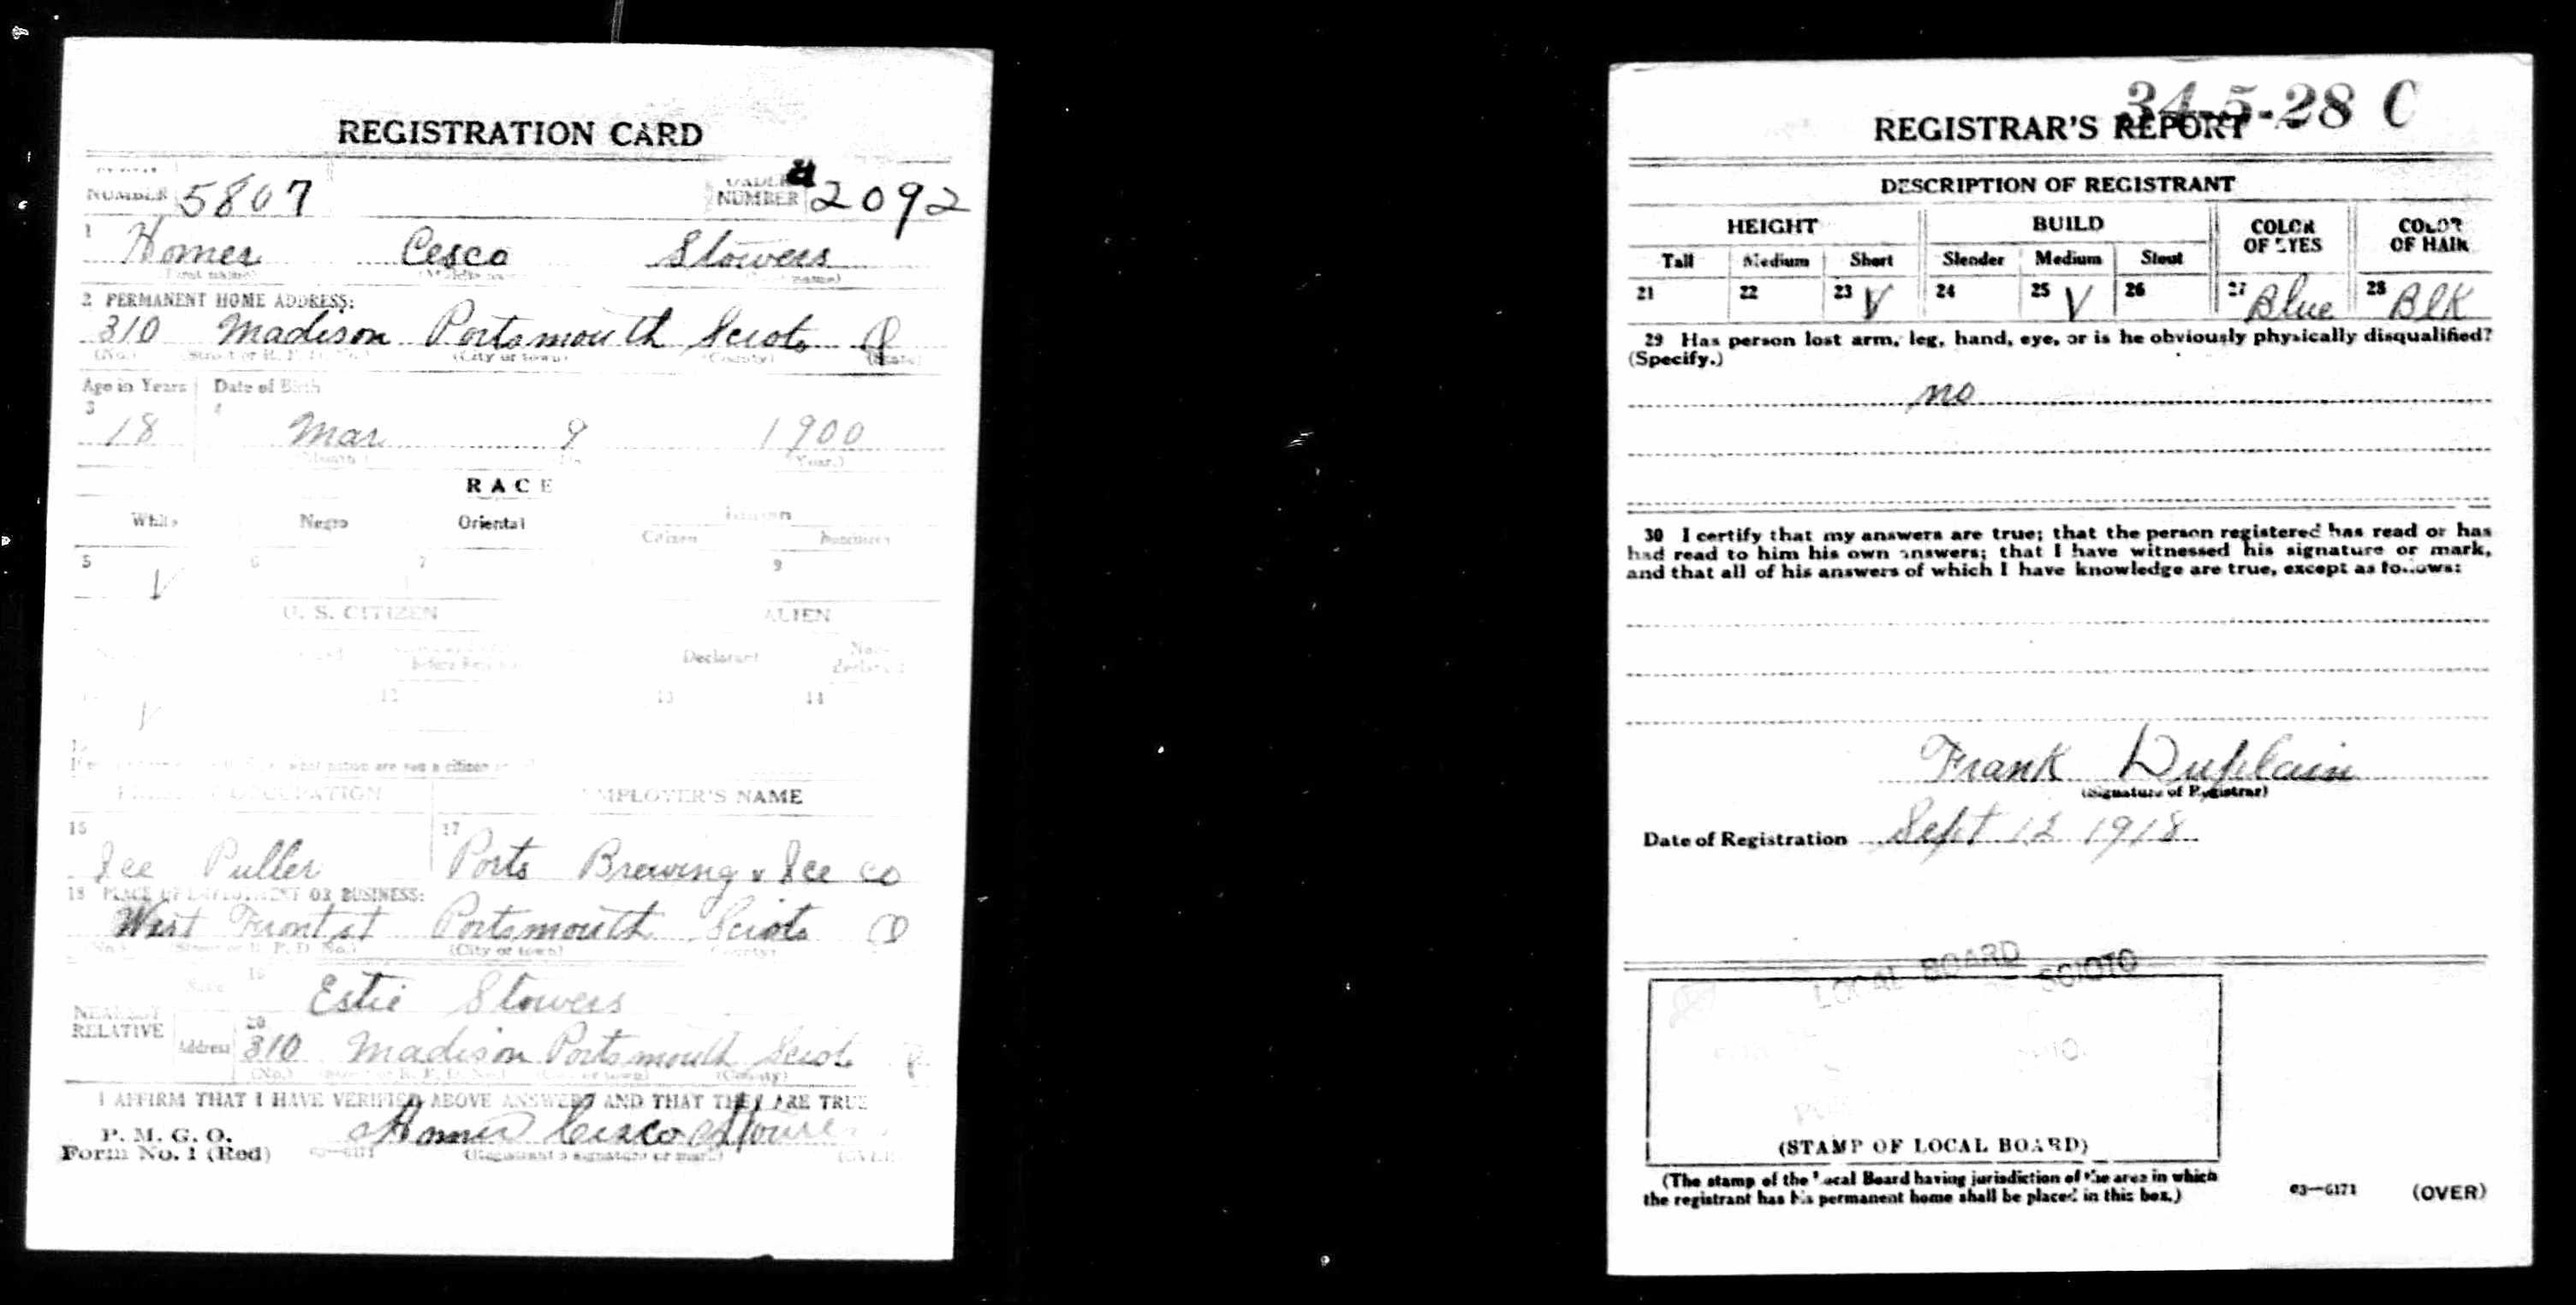 REGISTRATION CARD
NUMBER 5807 ORDER NUMBER A 2092
1 Homer Cesco Stowers
(First name) (Middle name) (Last name)
2 PERMANENT HOME ADDRESS:
310 Madison Portsmouth Scioto O
(No.) (Street or R. F. D. No.) (City or town) (County) (State)
Age in Years Date of Birth
3 4
18 Mar 9 1900
(Month) (Year.)
RACE
White Negro Oriental Indian
Citizen Noncitizen
5 6 7 9
V
U. S. CITIZEN ALIEN
Declarant Non-declarant
12 13 14
V
15
what nation are you a citizen
OCCUPATION EMPLOYER'S NAME
16 17
Ice Puller Ports Brewing & Ice Co
18 PLACE OF EMPLOYMENT OR BUSINESS:
West Front st Portsmouth Scioto O
(No.) (Street or R. F. D. No.) (City or town) (County)
NEAREST RELATIVE
Name 19 Estie Stowers
Address 20 310 Madison Portsmouth Scioto O
(No.) (Street or R. F. D. No.) (City or town) (County)
I AFFIRM THAT I HAVE VERIFIED ABOVE ANSWERS AND THAT THEY ARE TRUE
P. M. G. O.
Form No. 1 (Red) 03—6171 Homer Cesco Stowers
(Registrant's signature or mark) (OVER)
34-5-28 C
REGISTRAR'S REPORT
DESCRIPTION OF REGISTRANT
HEIGHT BUILD COLOR OF EYES COLOR OF HAIR
Tall Medium Short Slender Medium Stout
21 22 23 V 24 25 V 26 27 Blue 28 Blk
29 Has person lost arm, leg, hand, eye, or is he obviously physically disqualified?
(Specify.)
no
30 I certify that my answers are true; that the person registered has read or has
had read to him his own answers; that I have witnessed his signature or mark,
and that all of his answers of which I have knowledge are true, except as follows:
Frank Duplain
(Signature of Registrar)
Date of Registration Sept 12 1918
LOCAL BOARD SCIOTO
(STAMP OF LOCAL BOARD)
(The stamp of the Local Board having jurisdiction of the area in which
the registrant has his permanent home shall be placed in this box.)
03—6171 (OVER)